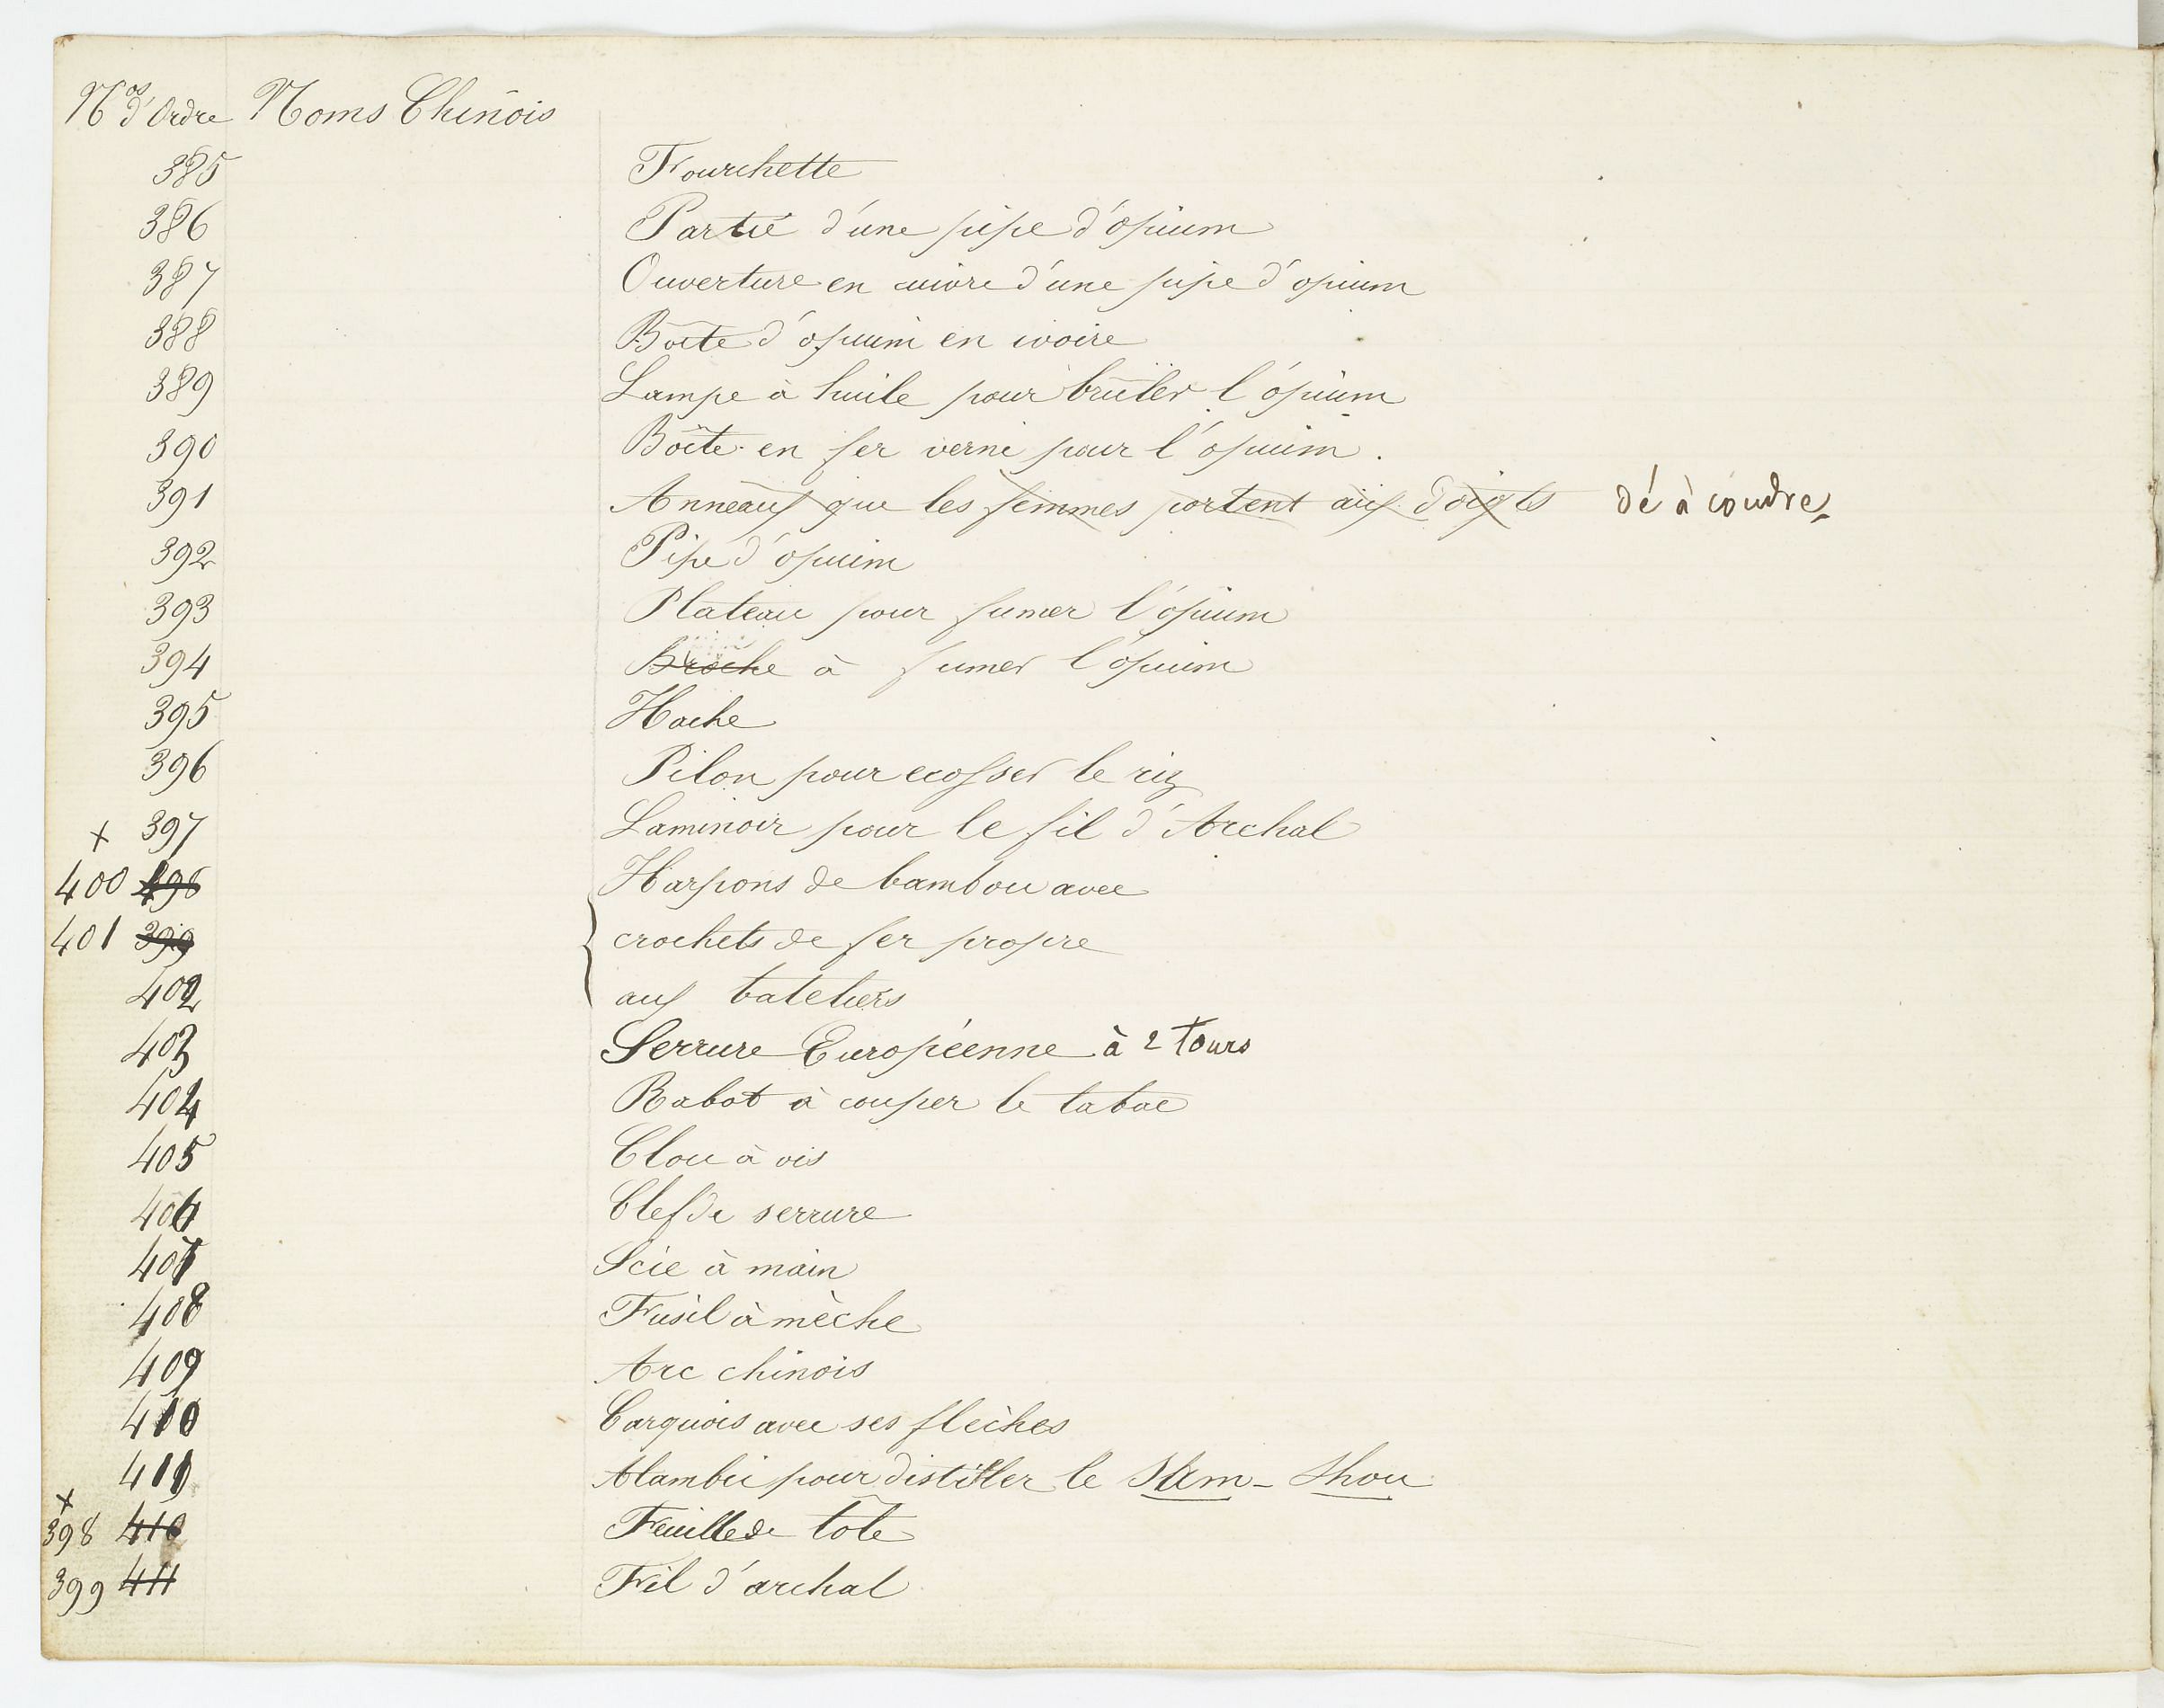 Nos d'Ordre Noms Chinois
385 Fourchette
386 Partie d'une pipe d'opium
387 Ouverture en cuivre d'une pipe d'opium
388 Boîte d'opium en ivoire
389 Lampe à huile pour brûler l'opium
390 Boîte en fer verni pour l'opium.
391 Anneaux que les femmes portent aux doigts dé à coudre
392 Pipe d'opium
393 Plateau pour fumer l'opium
394 Broche à fumer l'opium
395 Hache
396 Pilon pour ecosser le riz
+ 397 Laminoir pour le fil d'Archal
400 498 Harpons de bambou avec
401 399 crochets de fer propre
402 aux bateliers
403 Serrure Européenne à 2 tours
404 Rabot à couper le tabac
405 Clou à vis
406 Clef de serrure
407 Scie à main
408 Fusil à mèche
409 Arc chinois
410 Carquois avec ses flèches
411 Alambic pour distiller le Sam-Shou
+
398 410 Feuille de tôle
399 411 Fil d'archal